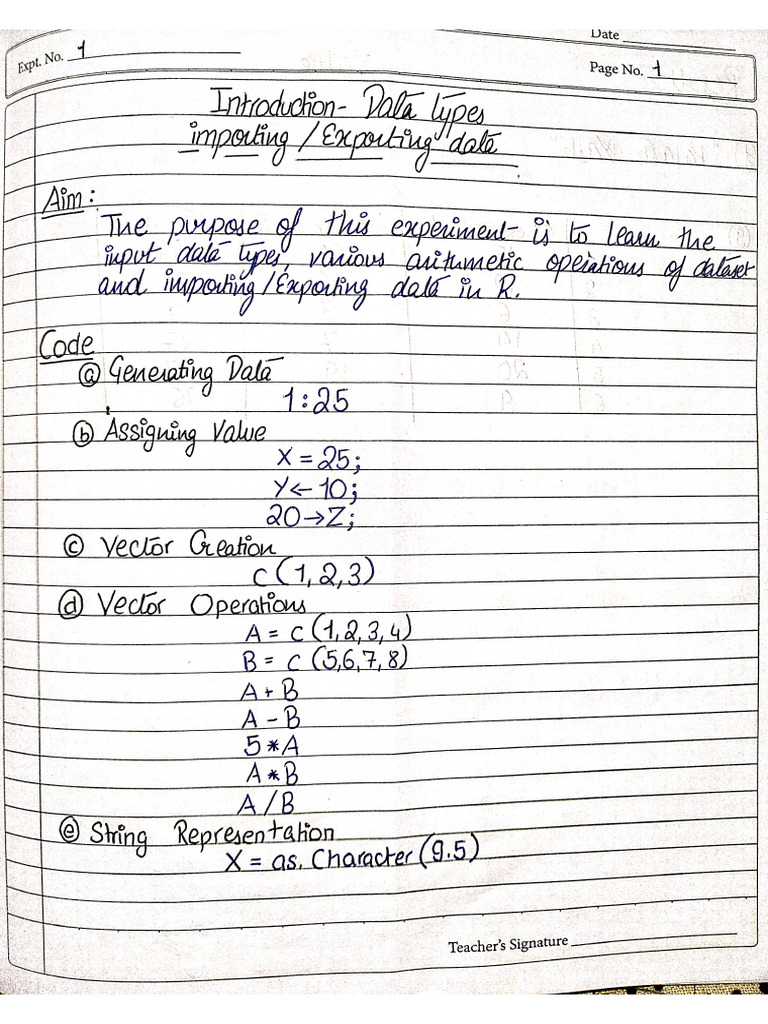 Date
Expt. No. 1
Page No. 1
Introduction- Data types
importing / Exporting data
Aim:
The purpose of this experiment is to learn the
input data types, various arithmetic operations of dataset
and importing/Exporting data in R.
Code
(a) Generating Data
1:25
(b) Assigning Value
X = 25;
Y ← 10;
20 → Z;
(c) Vector Creation
c(1,2,3)
(d) Vector Operations
A = c (1,2,3,4)
B = c (5,6,7,8)
A + B
A - B
5 * A
A * B
A / B
(e) String Representation
X = as. Character (9.5)
Teacher's Signature